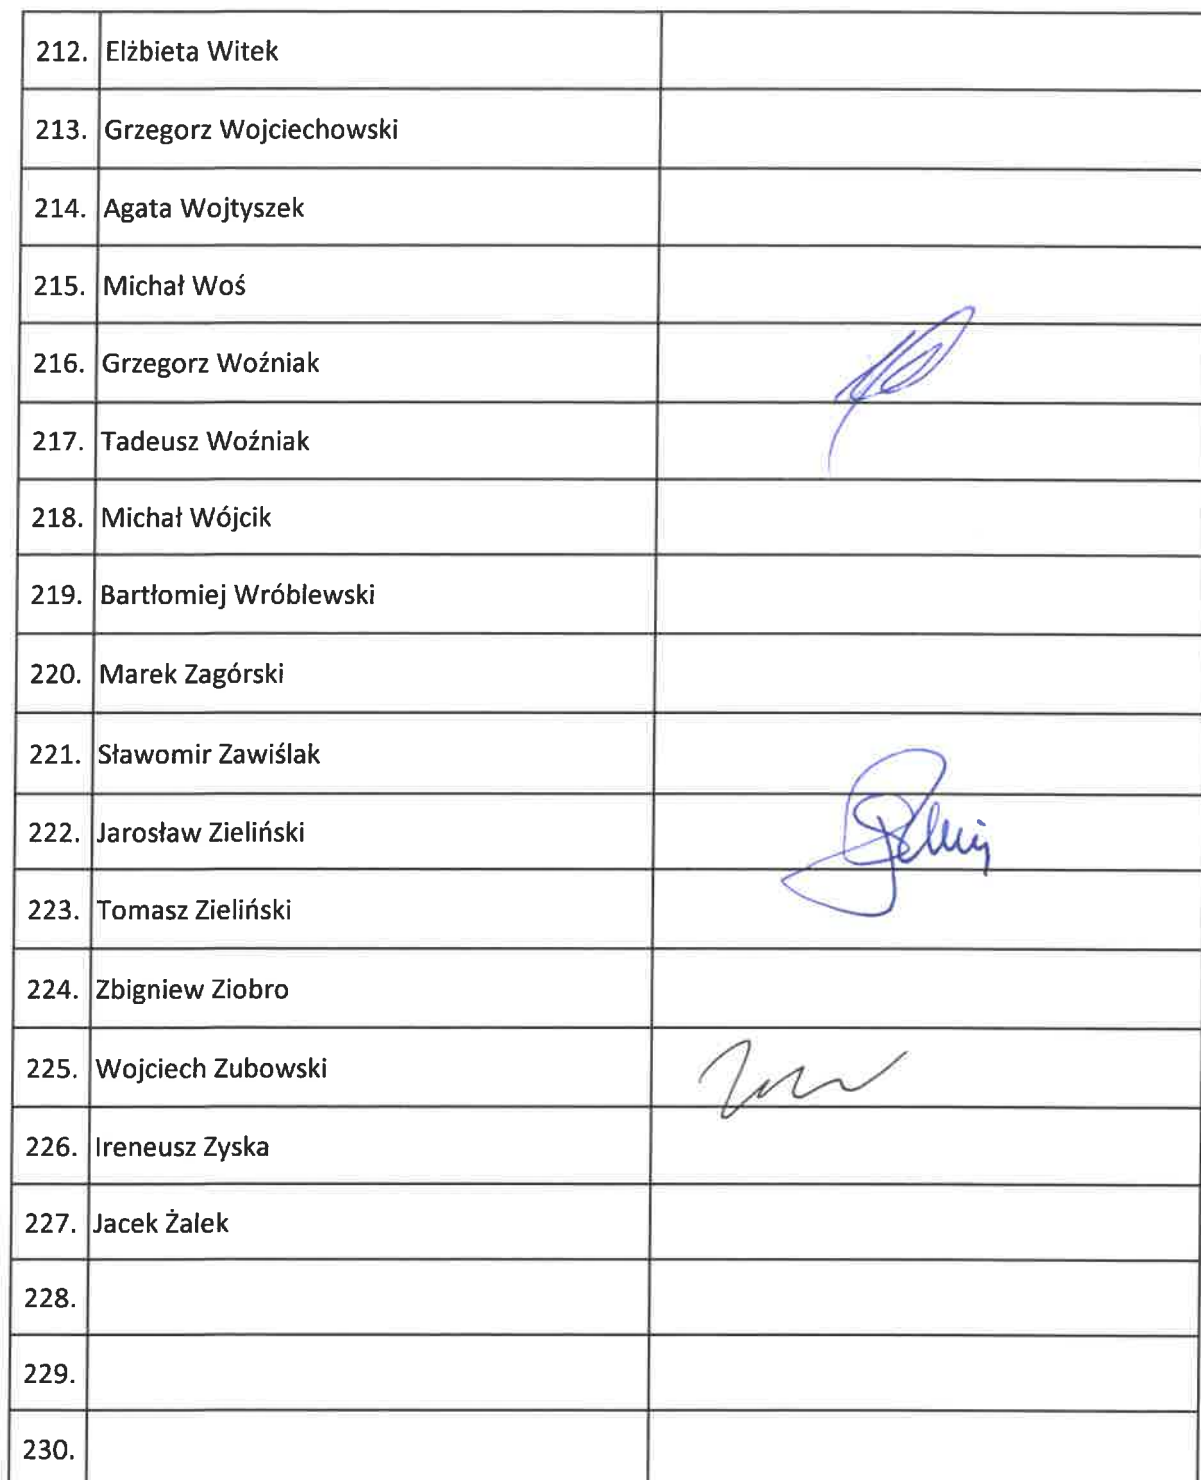 212. Elżbieta Witek
213. Grzegorz Wojciechowski
214. Agata Wojtyszek
215. Michał Woś
216. Grzegorz Woźniak
217. Tadeusz Woźniak
218. Michał Wójcik
219. Bartłomiej Wróblewski
220. Marek Zagórski
221. Sławomir Zawiślak
222. Jarosław Zieliński
223. Tomasz Zieliński
224. Zbigniew Ziobro
225. Wojciech Zubowski
226. Ireneusz Zyska
227. Jacek Żalek
228.
229.
230.